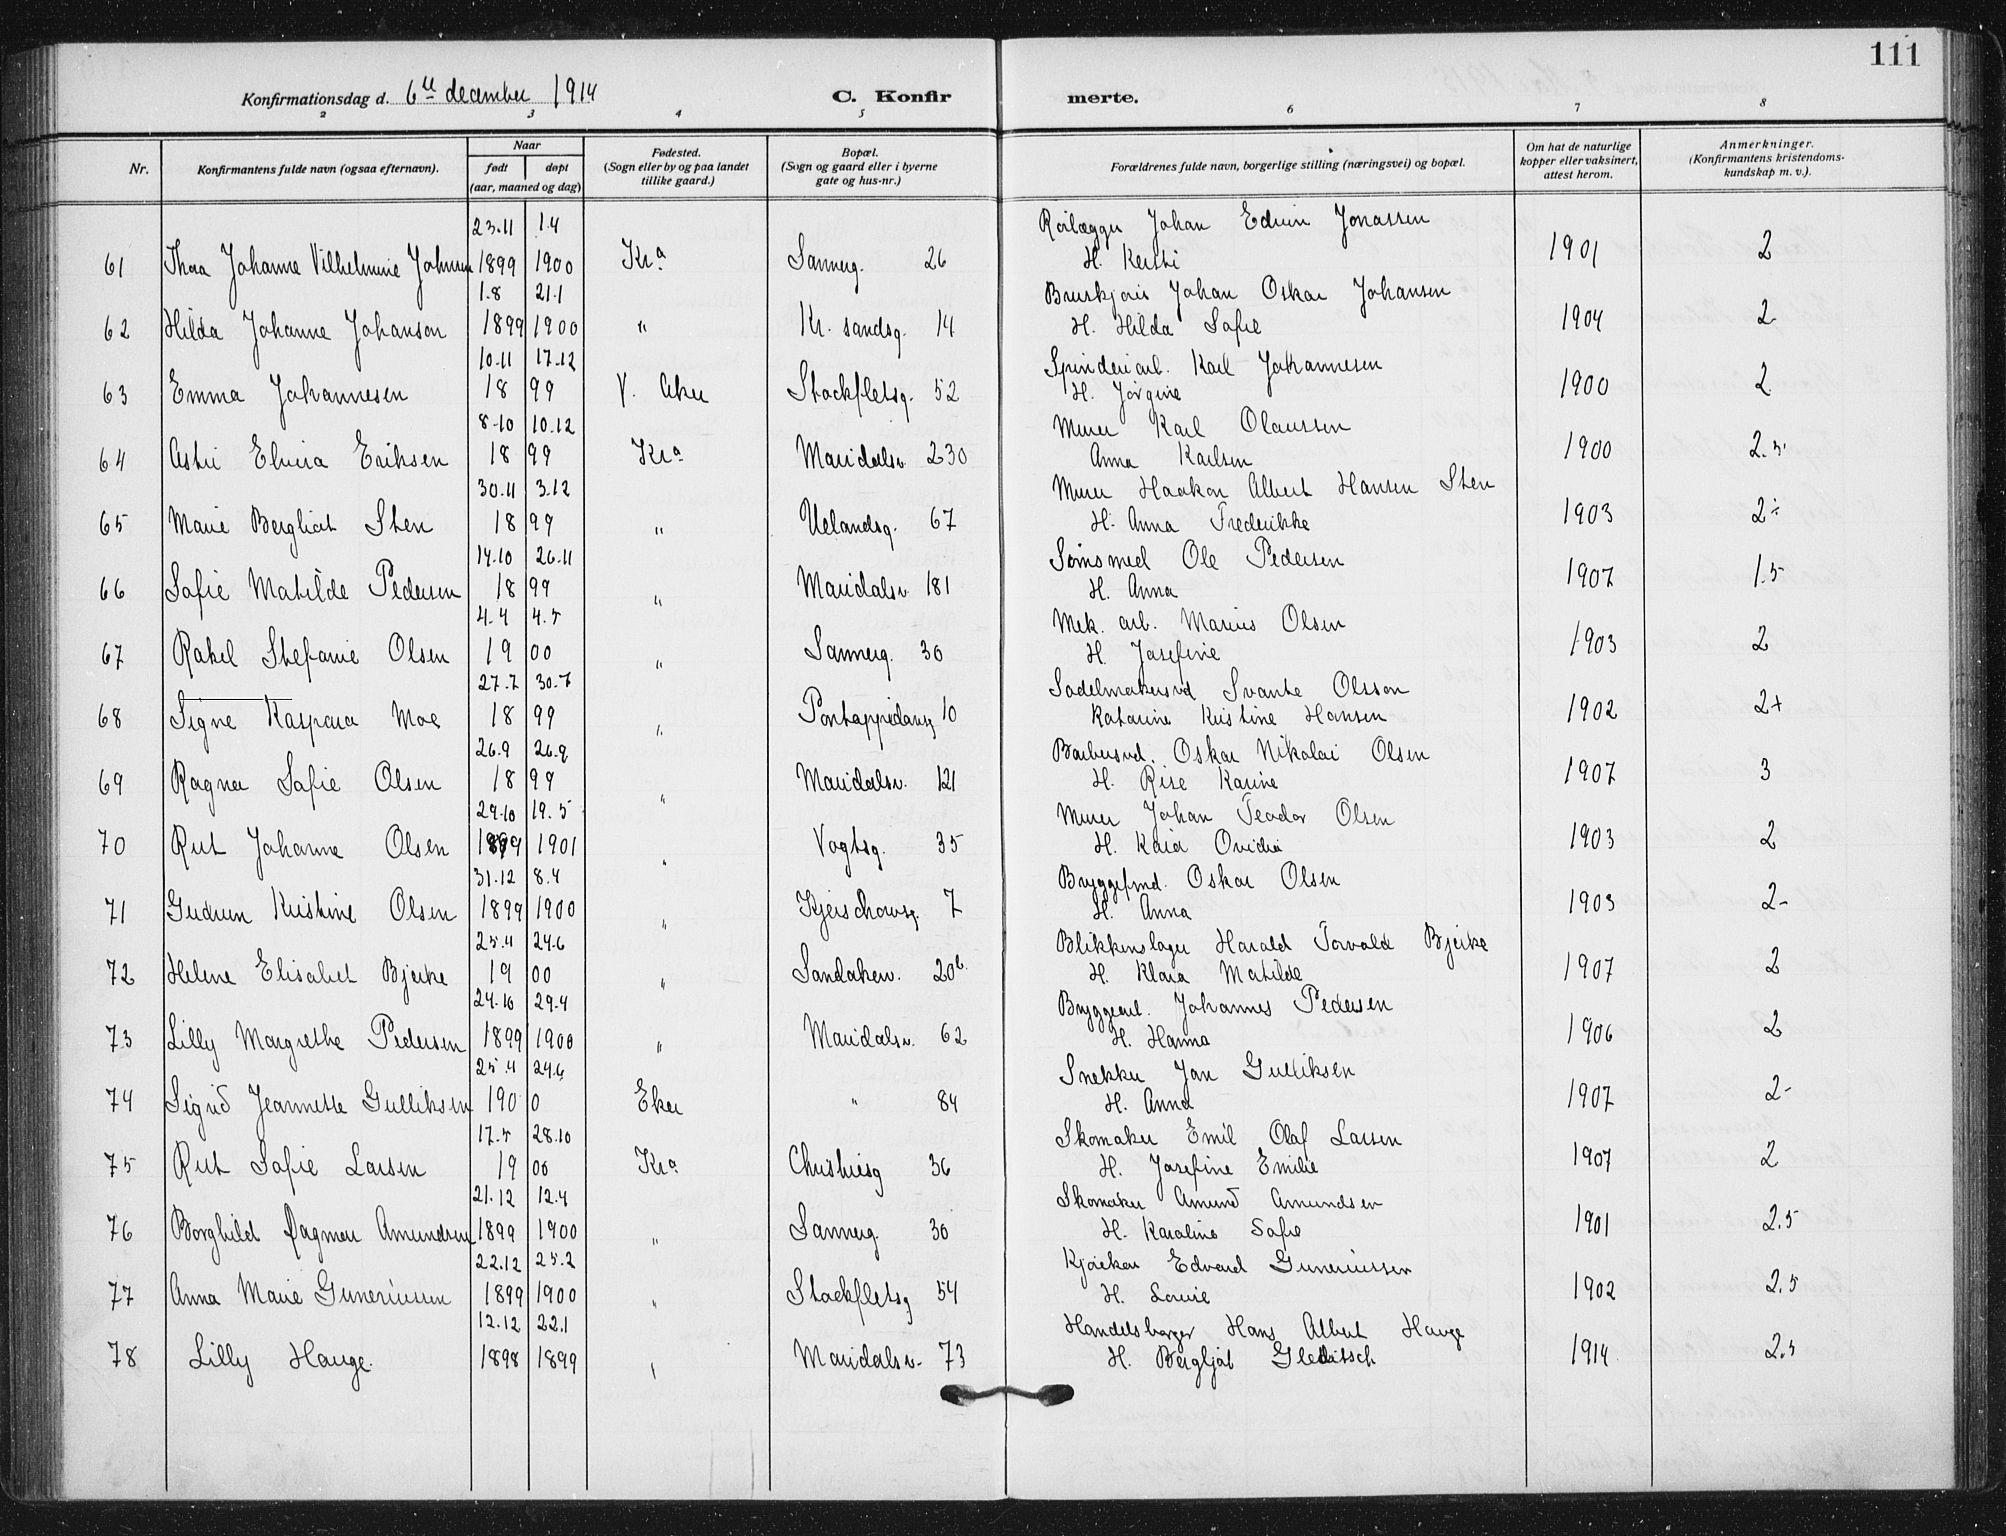 111
Konfirmationsdag d. 6te december 1914 C. Konfir merte.
2 3 4 5 6 7 8
Nr. Konfirmantens fulde navn (ogsaa efternavn). Naar født døpt (aar, maaned og dag) Fødested. (Sogn eller by og paa landet tillike gaard.) Bopæl. (Sogn og gaard eller i byerne gate og hus-nr.) Forældrenes fulde navn, borgerlige stilling (næringsvei) og bopæl. Om hat de naturlige kopper eller vaksinert, attest herom. Anmerkninger. (Konfirmantens kristendoms-kundskap m. v.).
23.11 1.4 Rørlægger Johan Edvin Jonassen
61 Thea Johanne Vilhelmine Johnsen 1899 1900 Kra Sannerg. 26 H. Kersti 1901 2
1.8 21.1 Bruskjører Johan Oskar Johansen
62 Hilda Johanne Johanson 1899 1900 " Kr. sandsg. 14 H. Hilda Sofie 1904 2
10.11 17.12 Spinderiarb. Karl Johannesen
63 Emma Johannesen 18 99 V. Aker Stockfletsg. 52 H. Jørgine 1900 2
8.10 10.12 Murer Karl Olaussen
64 Astri Elvira Eriksen 18 99 Kra Maridalsv. 230 Anna Karlsen 1900 2.5
30.11 3.12 Murer Haakon Albert Hansen Sten
65 Marie Bergliot Sten 18 99 " Uelandsg. 67 H. Anna Frederikke 1903 2÷
14.10 26.11 Sømsmed Ole Pedersen
66 Sofie Matilde Pedersen 18 99 " Maridalsv. 181 H. Anna 1907 1.5
4.4 4.5 Mek. arb. Marius Olsen
67 Rakel Stefanie Olsen 19 00 " Sannerg. 30 H. Josefine 1903 2
27.7 30.7 Sadelmakersvd Svante Olsson
68 Signe Kaspara Moe 18 99 " Pontoppidansg 10 Katarine Kristine Hansen 1902 2+
26.9 26.9 Barbersvd. Oskar Nikolai Olsen
69 Ragna Sofie Olsen 18 99 " Maridalsv. 121 H. Rise Karine 1907 3
29.10 19.5 Murer Johan Teodor Olsen
70 Rut Johanne Olsen 1899 1901 " Vogtsg. 35 H. Kaia Ovidia 1903 2
31.12 8.4 Bryggefmd. Oskar Olsen
71 Gudrun Kristine Olsen 1899 1900 " Kjerschowsg. 7 H. Anna 1903 2-
25.4 24.6 Blikkenslager Harald Torvald Bjerke
72 Helene Elisabet Bjerke 19 00 " Sandakerv. 20b. H. Klara Matilde 1907 2
24.10 29.4 Bryggearb. Johannes Pedersen
73 Lilly Margrethe Pedersen 1899 1900 " Maridalsv. 62 H. Hanna 1906 2
25.4 24.6 Snekker Jan Gulliksen
74 Sigrid Jeannette Gulliksen 190 0 Eker " 84 H. Anna 1907 2-
17.5 28.10 Skomaker Emil Olaf Larsen
75 Rut Sofie Larsen 19 00 Kra. Christiesg 36 H. Josefine Emilie 1907 2
21.12 12.4 Skomaker Amund Amundsen
76 Borghild Dagmar Amundsen 1899 1900 " Sannerg. 30 H. Karoline Sofie 1901 2.5
22.12 25.2 Edvard Gunerinssen
77 Anna Marie Gunerinssen 1899 1900 " Stockfletsg 54 H. Lovise 1902 2.5
12.12 22.1 Handelsborger Hans Albert Hauge
78 Lilly Hauge. 1898 1899 " Maridalsv. 73 H. Bergljot Gleditsch 1914 2.5